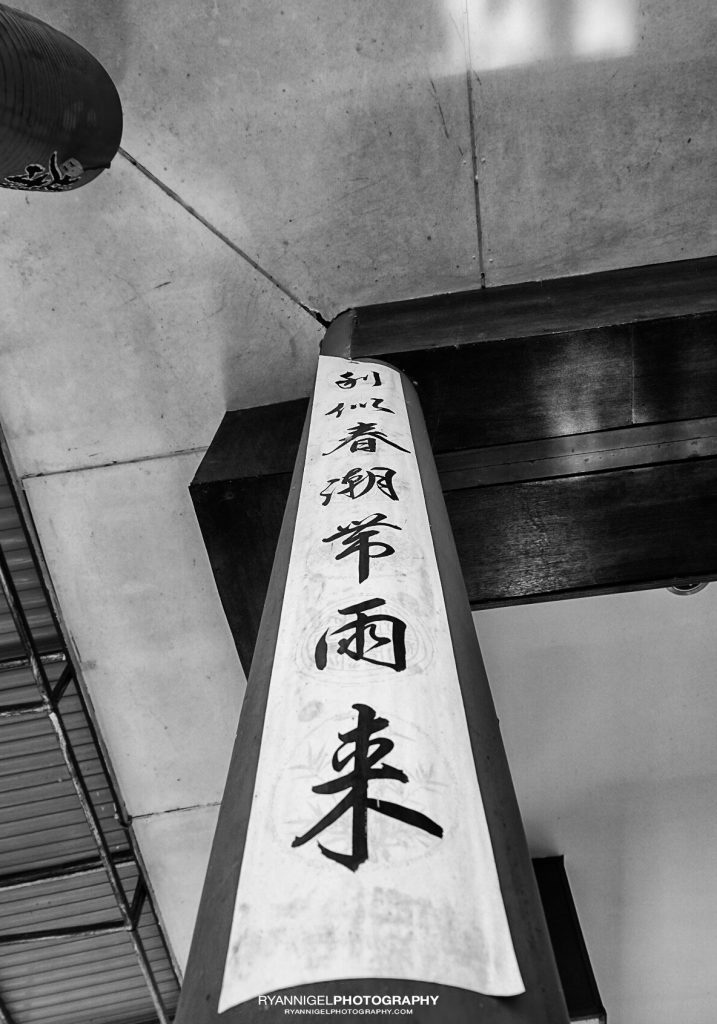 利似春潮带雨来
RYANNIGELPHOTOGRAPHY
RYANNIGELPHOTOGRAPHY.COM